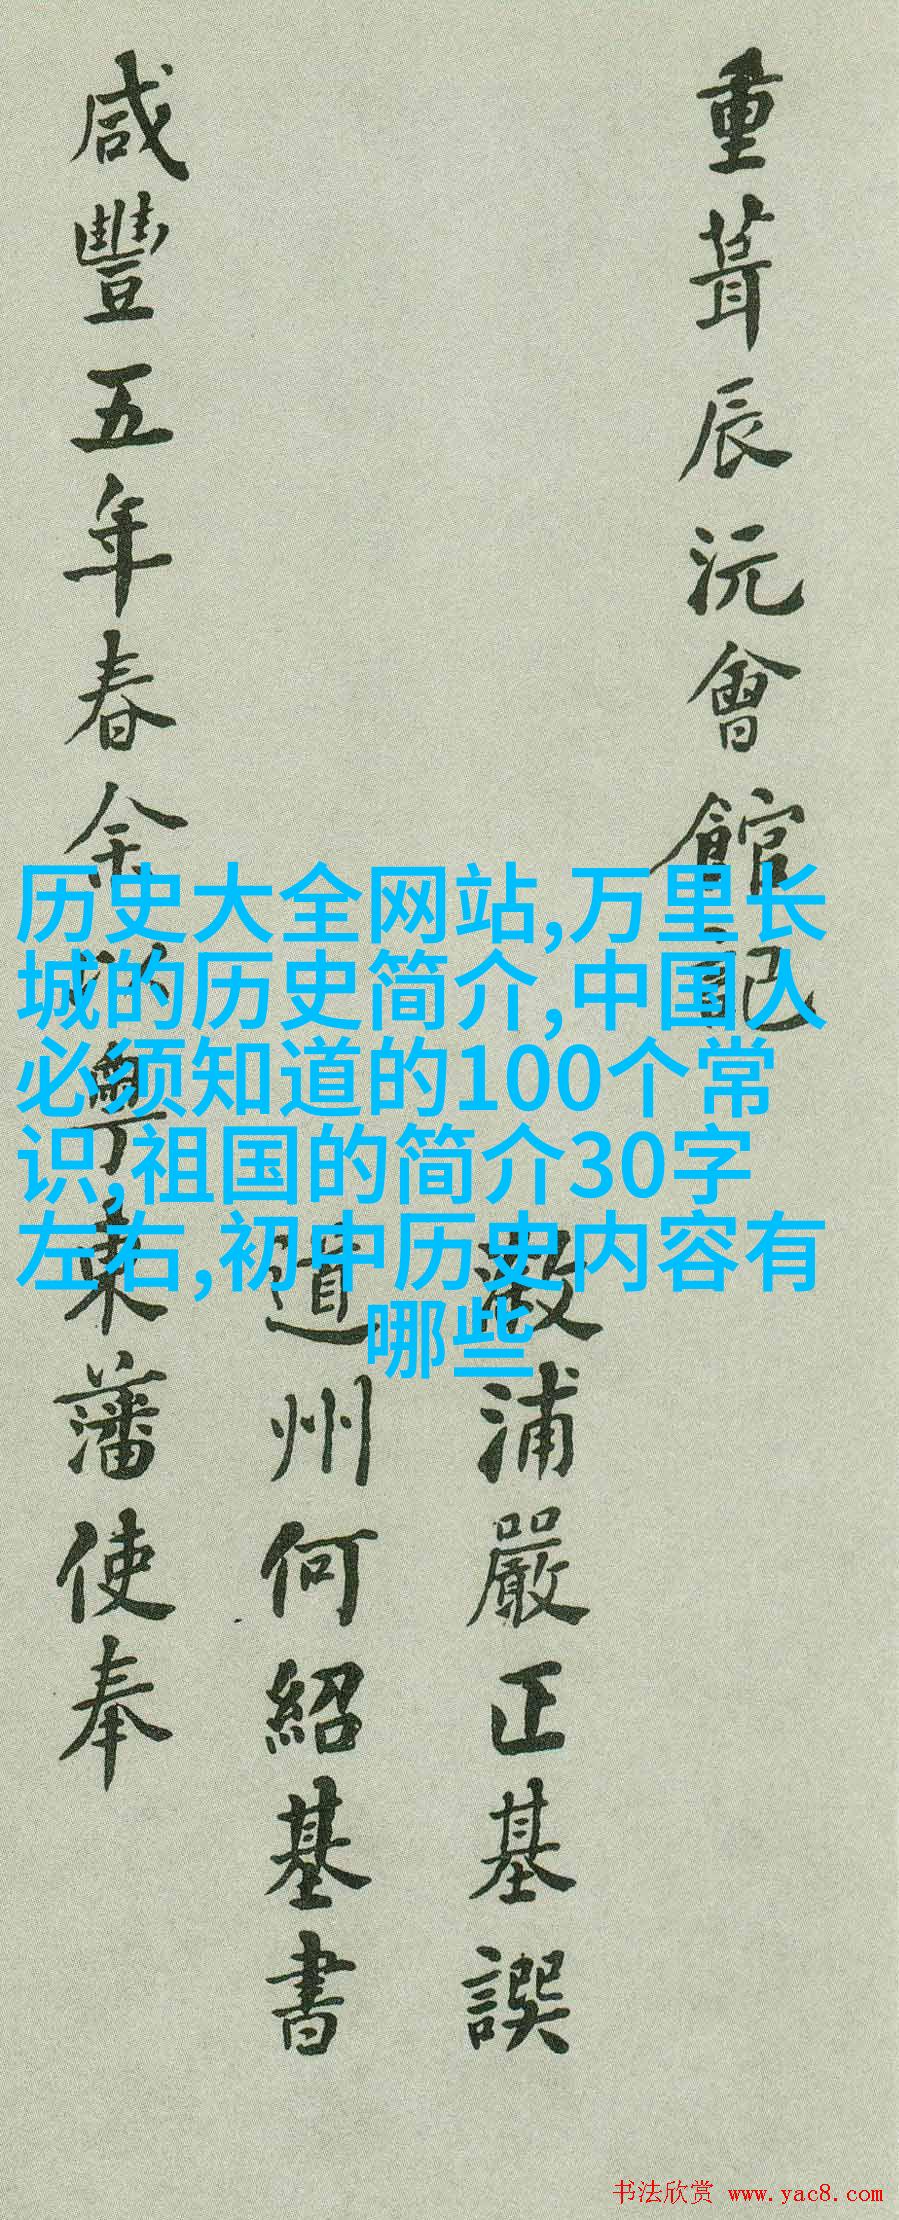 重葺辰沅會館記
漵浦嚴正基譔
道州何紹基書
咸豐五年春余以粵東藩使奉
历史大全网站,万里长
城的历史简介,中国人
必须知道的100个常
识,祖国的简介30字
左右,初中历史内容有
哪些
书法欣赏 www.yac8.com